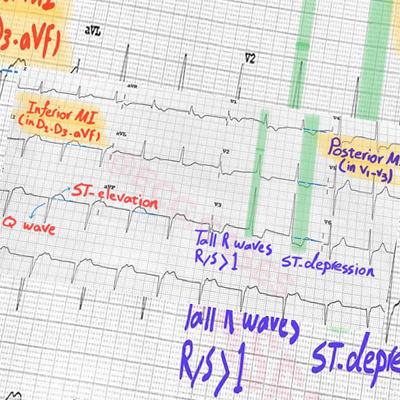 D3.aVf)
aVL
V2
aVR
V1
V4
Inferior MI
(in D2.D3.aVf)
aVL
V2
V5
Posterior M
(in V1-V3)
ST-elevation
aVF
V3
V6
Q wave
Tall R waves
R/S>1
ST.depression
Tall R waves
R/S>1
ST.depre